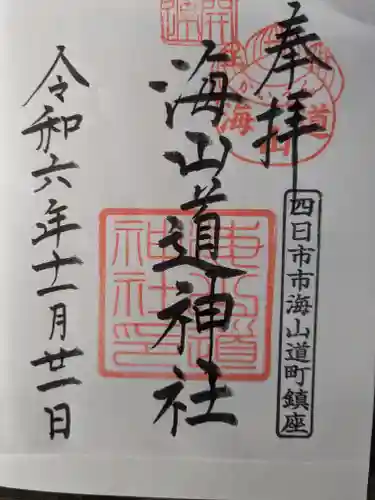 奉拝
四日市市海山道町鎮座
海山道神社
海山道神社印
海山道
令和六年十一月廿一日